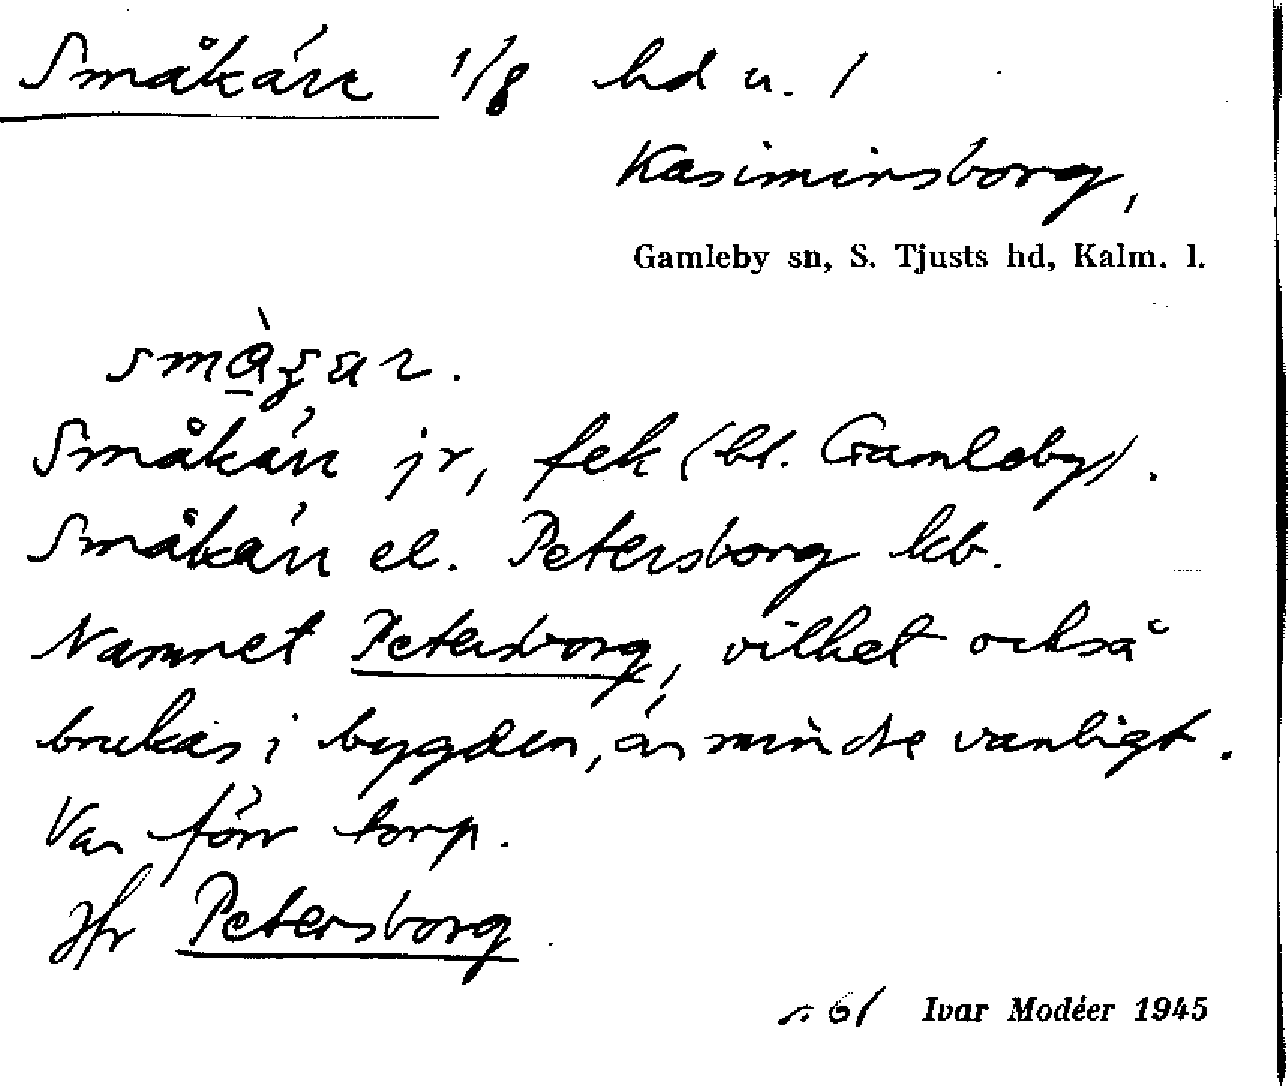 Småkärr 1/8 hd u. /
Kasimirsborg,
Gamleby sn, S. Tjusts hd, Kalm. l.
Småkärr jr, fek (bl. Gamleby).
Småkärr el. Petersborg kb.
Namnet Petersborg, vilket också
brukas i bygden, är mindre vanligt.
Var förr torp.
Jfr Petersborg
s. 61 Ivar Modéer 1945